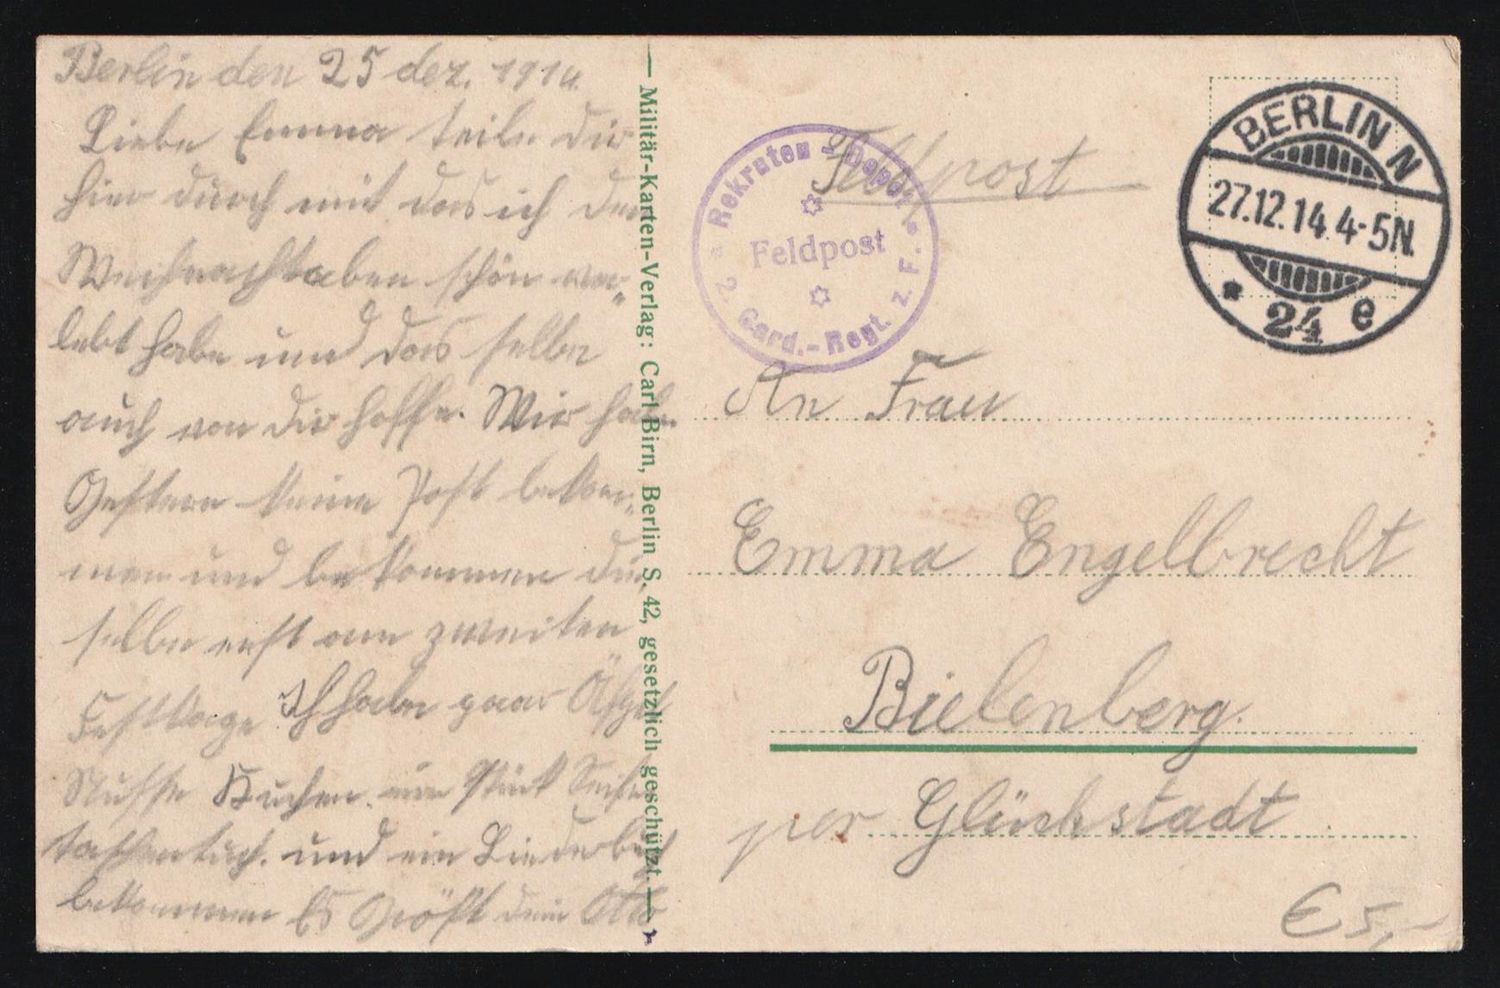 Berlin den 25 dez. 1914.
Liebe Emma teile dir
hier durch mit das ich den
Weihnachtaben schön ver„
lebt habe und das selbe
auch von dir hoffe. Wir haben
Gestern keine Post bekom„
men und bekommen die
selbe erst am zweiten
Festtage Ich habe paar Äpfel
Nüsse Kuchen. ein Stück Seife
taschentuch. und ein Liederbuch
bekommen Es Größt dein Otto
— Militär-Karten-Verlag: Carl Birn, Berlin S. 42, gesetzlich geschützt. —
Rekruten-Depot
Feldpost
2. Gard.-Regt. z. F.
Feldpost
BERLIN N
27.12.14.4-5N.
* 24 e
An Frau
Emma Engelbrecht
Bielenberg.
per Glückstadt
€ 5,-